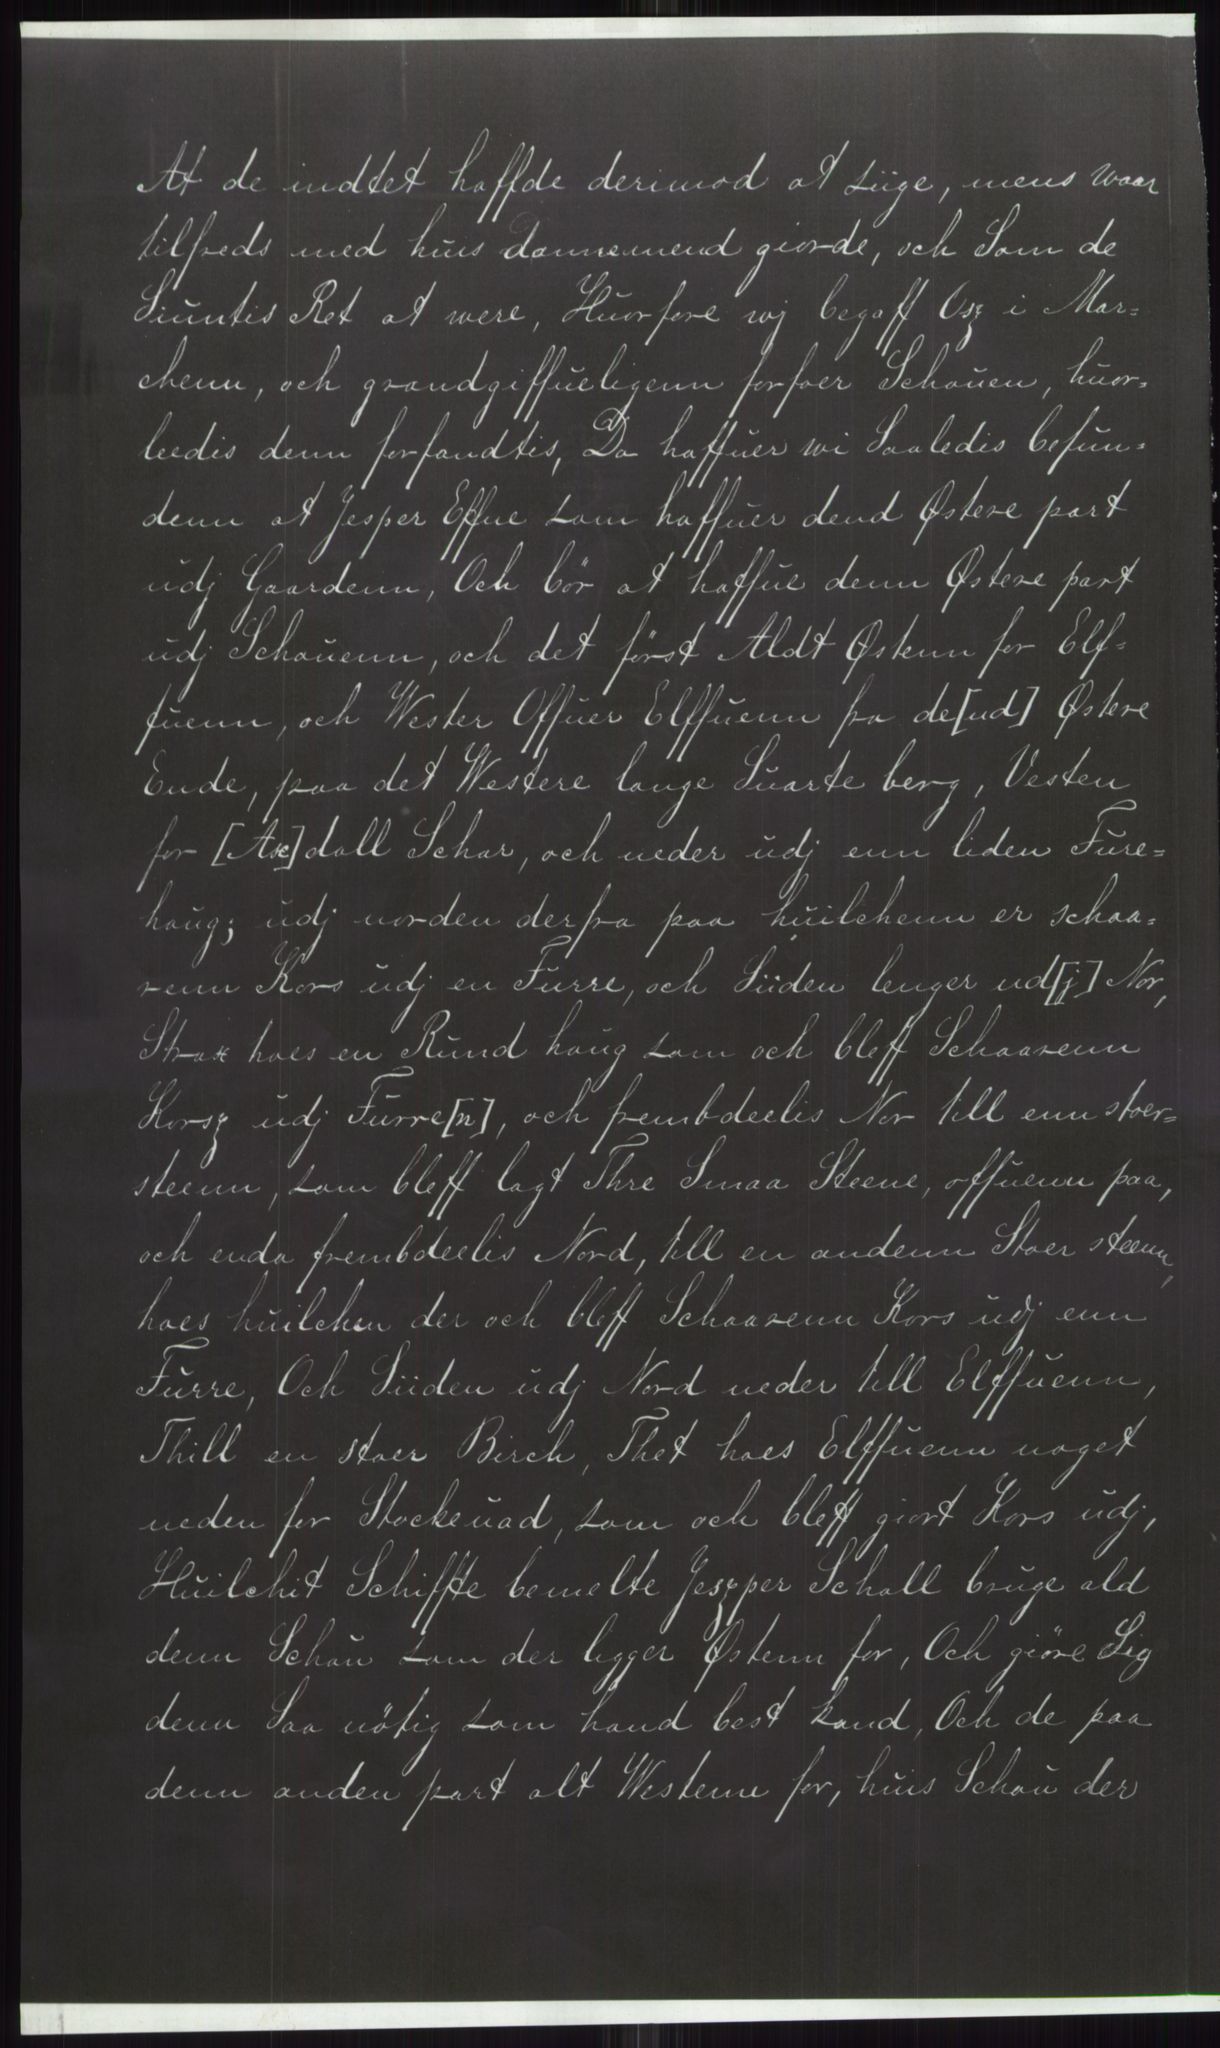 At de indtet haffde derimod at siige, mens waar
tilfreds med huis Dannemend giorde, och Som de
Siuntis Ret at were, Huorfore wj begaff Osz i Mar=
chenn, och grandgiffueligenn forfoer Schouen, huor=
leedis denn forfandtis, Da haffuer wi Saaledis befun=
denn at Jesper Effue som haffuer dend Østere part
udj Gaardenn, Och bör at haffue denn Østere part
udj Schouenn, och det först Aldt Østenn for Elf=
fuenn, och Wester Offuer Elffuenn fra de[nd] Østere
Ende, paa det Westere lange Suarte berg, Vesten
for [Ax]dall Schar, och neder udj enn liden Fure=
haug; udj norden derfra paa huilchenn er schaa=
renn Kors udj en Furre, och Siiden lenger ud[j] Nor,
Strax hoes en Rund haug som och bleff Schaarenn
Korsz udj Furre[n], och frembdeelis Nor till enn stoer=
steenn, som bleff lagt Thre Smaa Steene, offuenn paa,
och enda frembdeelis Nord, till en andenn Stoer steenn,
hoes huilchen der och bleff Schaarenn Kors udj enn
Furre, Och Siiden udj Nord neder till Elffuenn,
Thill en stoer Birch, Thet hoes Elffuenn noget
neden for Stockeuad, som och bleff giort Kors udj,
Huilchit Schiffte bemelte Jeszper Schall bruge ald
denn Schou som der ligger Østenn for, Och giöre Sig
denn Saa nötig som hand best kand, Och de paa
denn anden part alt Westenn for, huis Schou der